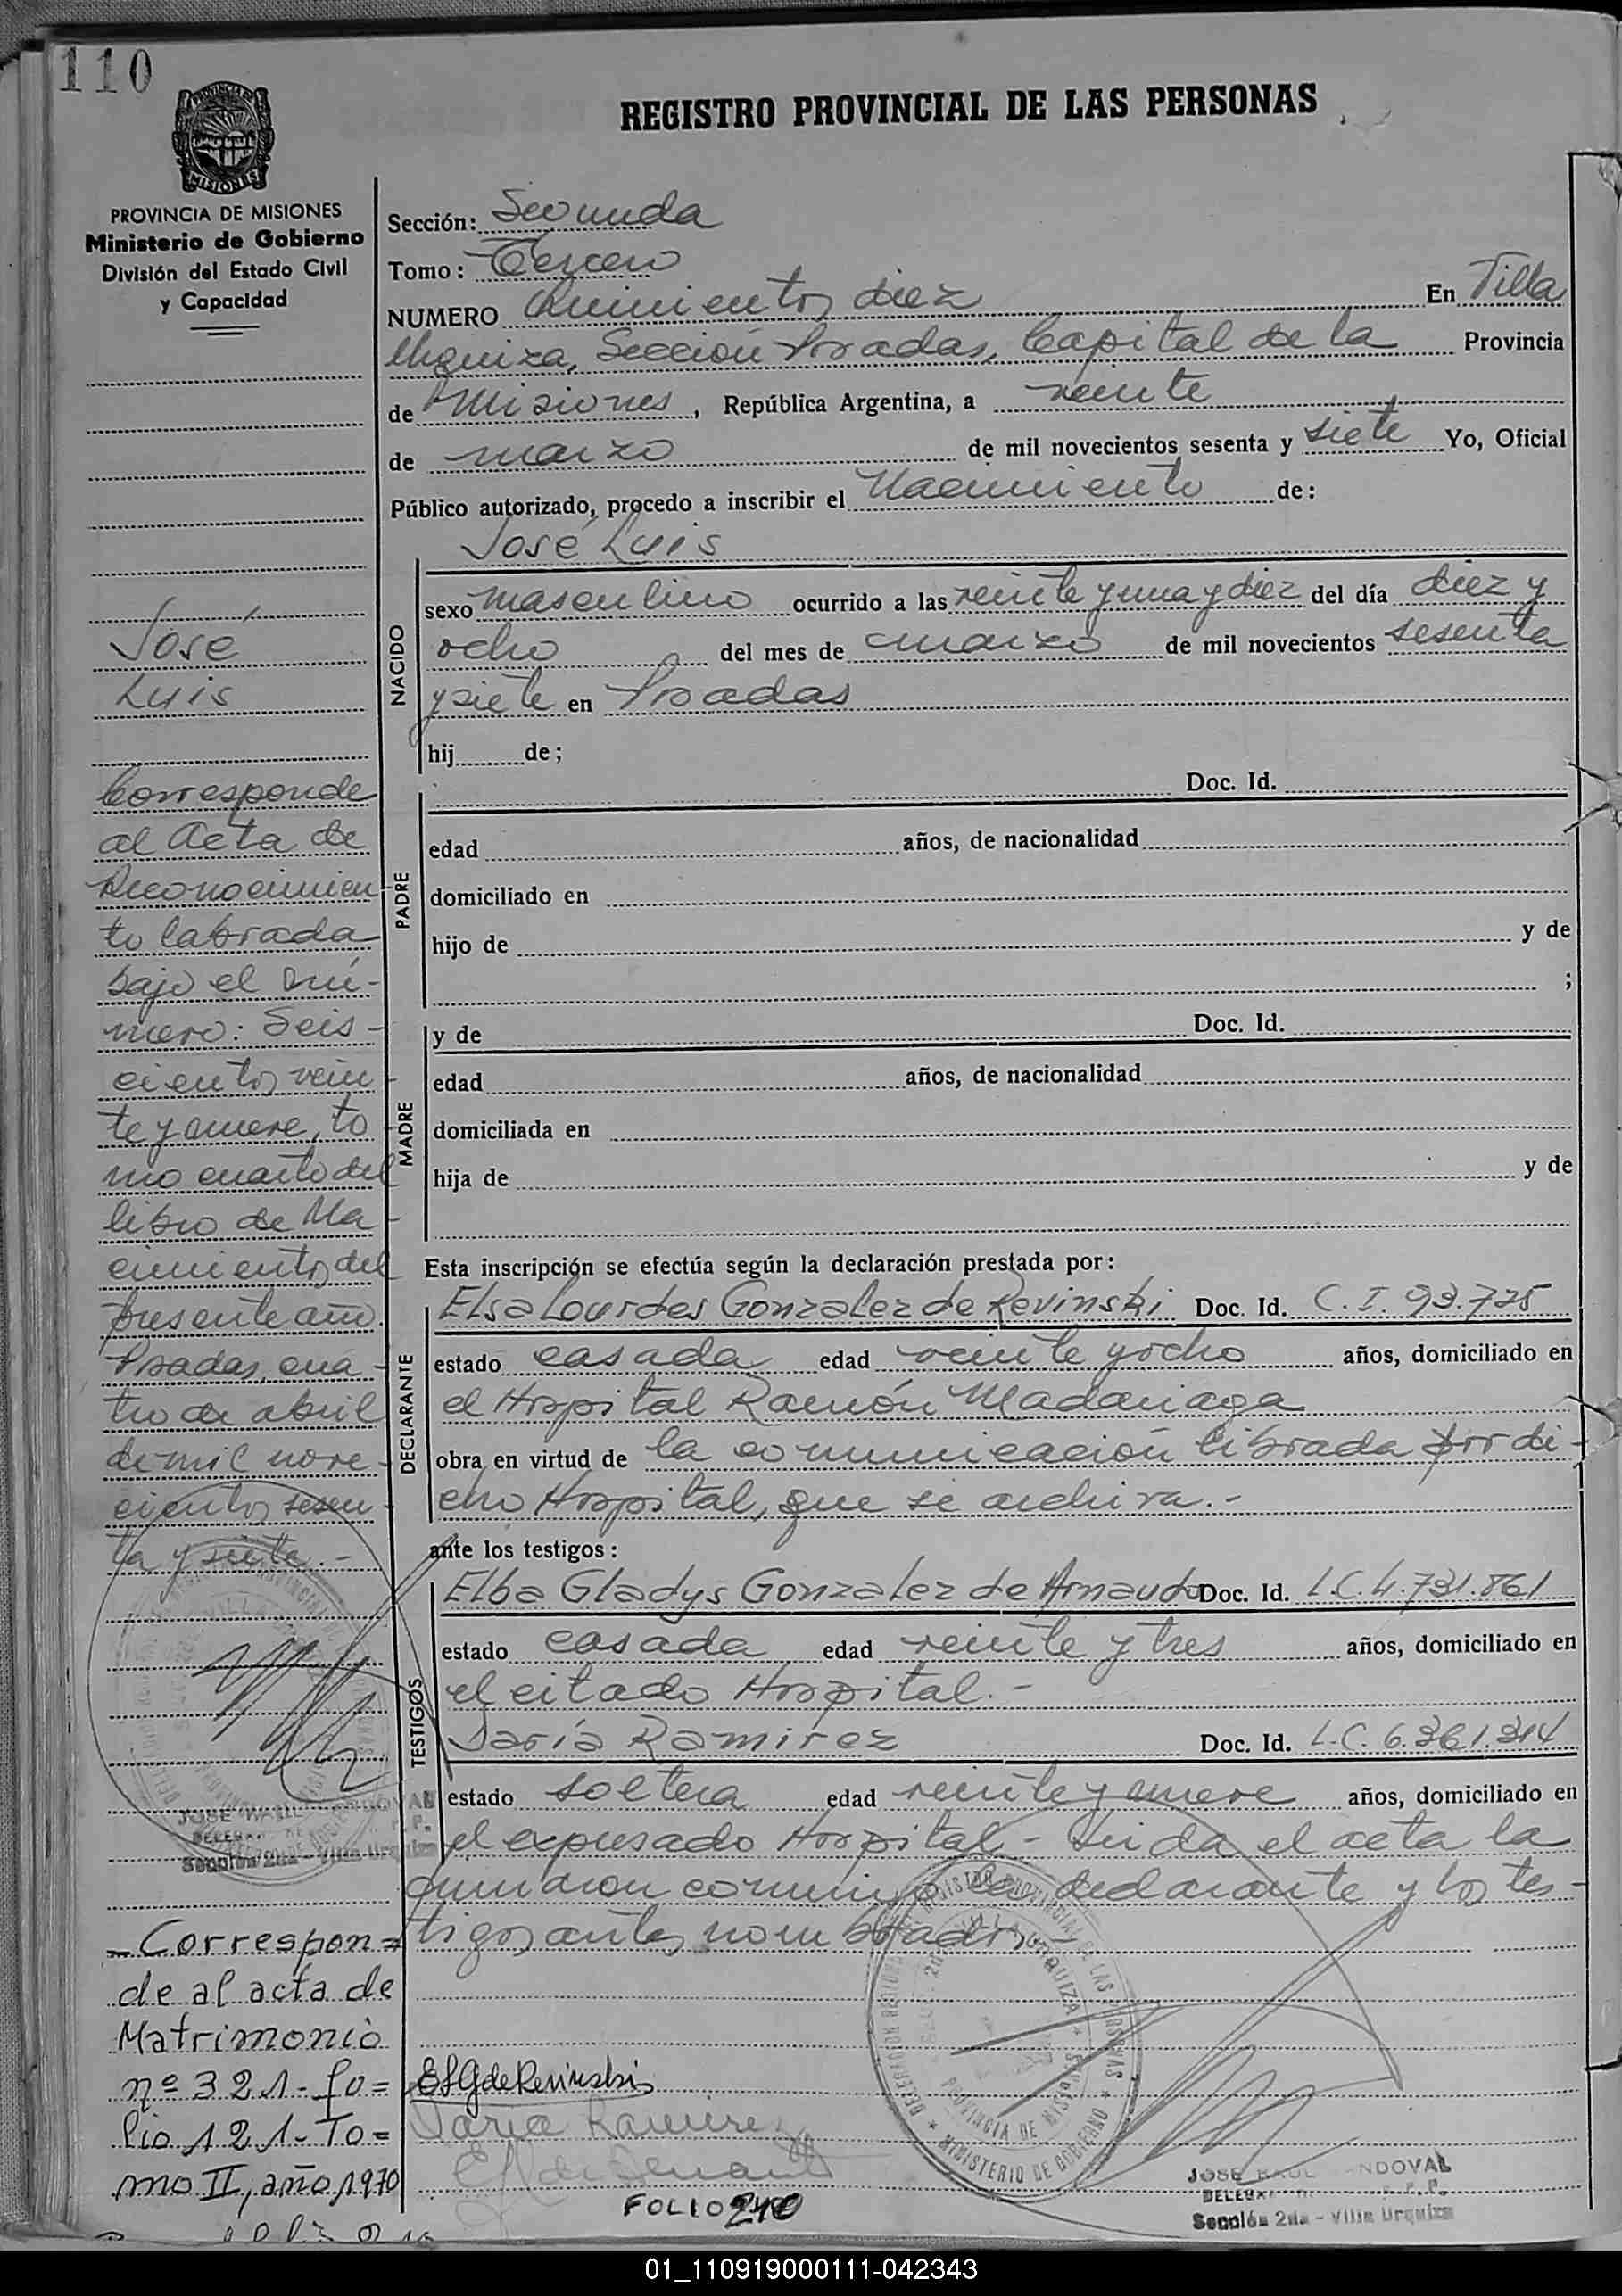 110
REGISTRO PROVINCIAL DE LAS PERSONAS
PROVINCIA DE MISIONES
Ministerio de Gobierno
División del Estado Civil
y Capacidad
José
Luis
Corresponde
al Acta de
Reconocimien
to labrada
bajo el nú-
mero: Seis-
cientos vein-
te y nueve, to
mo cuarto del
libro de Na-
cimientos del
presente año.
Posadas, cua-
tro de abril
de mil nove-
cientos sesen-
ta y siete.-
JOSE RAUL SANDOVAL
Sección 2da - Villa Urquiza
- Correspon=
de al acta de
Matrimonio
nº 321- fo=
lio 121- To=
mo II, año 1970
Sección: Segunda
Tomo: Tercero
NUMERO Quinientos diez En Villa
Urquiza, Sección Posadas, Capital de la Provincia
de Misiones, República Argentina, a veinte
de marzo de mil novecientos sesenta y siete Yo, Oficial
Público autorizado, procedo a inscribir el Nacimiento de:
José Luis
NACIDO
sexo masculino ocurrido a las veinte y una y diez del día diez y
ocho del mes de marzo de mil novecientos sesenta
y siete en Posadas
hij de;
Doc. Id.
PADRE
edad años, de nacionalidad
domiciliado en
hijo de y de
;
y de Doc. Id.
MADRE
edad años, de nacionalidad
domiciliada en
hija de y de
Esta inscripción se efectúa según la declaración prestada por:
DECLARANTE
Elsa Lourdes Gonzalez de Revinski Doc. Id. C.I. 93.725
estado casada edad veinte y ocho años, domiciliado en
el Hospital Ramón Madariaga
obra en virtud de la comunicación librada por di-
cho Hospital, que se archiva.-
ante los testigos:
TESTIGOS
Elba Gladys Gonzalez de Arnaudo Doc. Id. L.C. 4.731.861
estado casada edad veinte y tres años, domiciliado en
el citado Hospital.-
Daría Ramirez Doc. Id. L.C. 6.361.314
estado soltera edad veinte y nueve años, domiciliado en
el expresado Hospital.- Leida el acta la
firmaron conmigo la declarante y los tes-
tigos antes nombrados.-
ELG de Revinski
Daría Ramirez
DELEGACION
REGISTRO PROVINCIAL DE LAS PERSONAS
VILLA URQUIZA
PROVINCIA DE MISIONES
MINISTERIO DE GOBIERNO
JOSE RAUL SANDOVAL
Sección 2da - Villa Urquiza
FOLIO 210
01_110919000111-042343